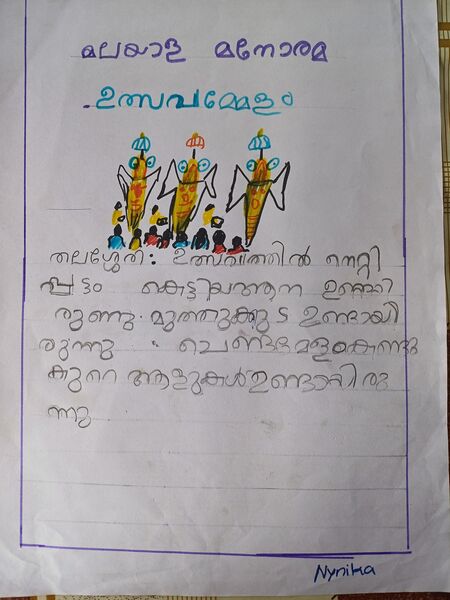 മലയാള മനോരമ
ഉത്സവമ്മേളം
തലശ്ശേരി: ഉത്സവത്തിൽ നെറ്റി
പ്പട്ടം കെട്ടിയആന ഉണ്ടായി
രുന്നു. മുത്തുക്കുട ഉണ്ടായി
രുന്നു. ചെണ്ടമേളംകുണ്ടു
കുറെ ആളുകൾഉണ്ടായിരു
ന്നു
Nynika